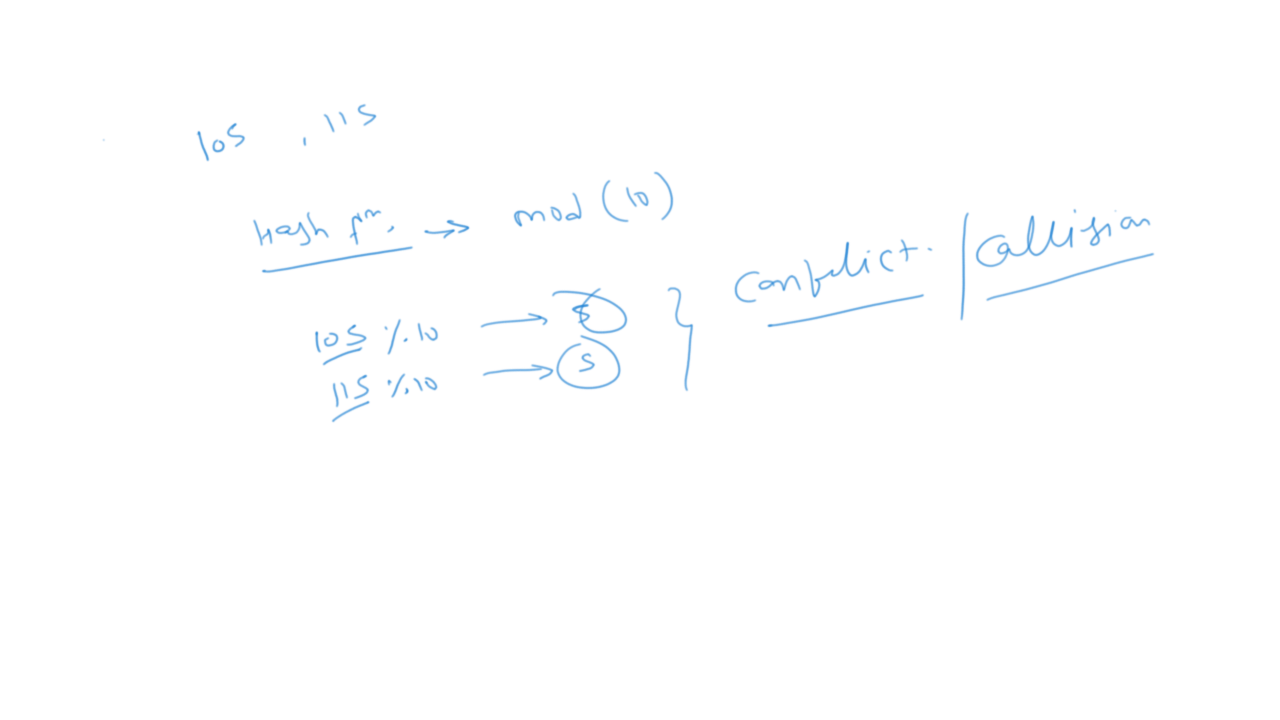 105 , 115
Hash fn. → mod (10)
105 % 10 → 5
115 % 10 → 5
Conflict. / Collision